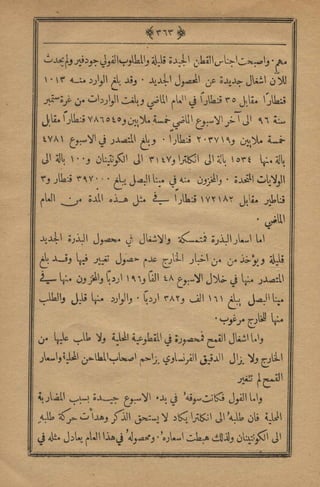 ﴿ ٣٦٣ ﴾
مهم . واصبحت اجناس القطن الجيدة قليلة والمطلوب الفولي جود فير ولم يحدث
للآن اشغال جديدة عن المحصول الجديد . وقد بلغ الوارد منه ١٠١٣
قنطارًا مقابل ٣٥ قنطارًا في العام الماضي وبلغت الواردات من غرة ستمبر
سنة ٩٦ الى آخر الاسبوع الماضي خمسة ملايين و٧٨٦٥٤٥ قنطارًا مقابل
خمسة ملايين و٢٠٣٧١٩ قنطارًا . وبلغ المتصدر في الاسبوع ٤٧٨١
بالة منها ١٥٣٤ بالة الى انكلترا و٣١٤٧ الى الكونتينان و١٠٠ بالة الى
الولايات المتحدة . والمخزون منه في مينا البصل يبلغ ٣٩٧٠٠٠ قنطار و٣
قناطير مقابل ١٧٢١٨٢ قنطارًا في مثل هذه المدة من العام
الماضي .
اما اسعار البذرة فمتمسكة والاشغال في محصول البذرة الجديد
قليلة ويوخذ من من اخبار الخارج عدم حصول تغيير فيها وقد بلغ
المتصدر منها في خلال الاسبوع ٤٨ الفا و١٩٦ اردبا والمخزون منها في
مينا البصل يبلغ ١٦١ الف و٣٨٢ اردبا . والوارد منها قليل والطلب
منها للخارج مرغوب .
واما اشغال القمح فمحصورة في المقطوعية المحلية ولا طلب عليها من
الخارج ولا يزال الدقيق الفرنساوي يزاحم اصحاب المطاحن المحلية واسعار
القمح لم تتغير
واما الفول فكانت سوقه في بدء الاسبوع جيدة بسبب المضاربة
المحلية فان طلبه الى انكلترا يكاد لا يستحق الذكر وهدأت حركة طلبه
الى الكونتينان ولذلك هبطت اسعاره . ومحصوله في هذا العام يعادل مثله في